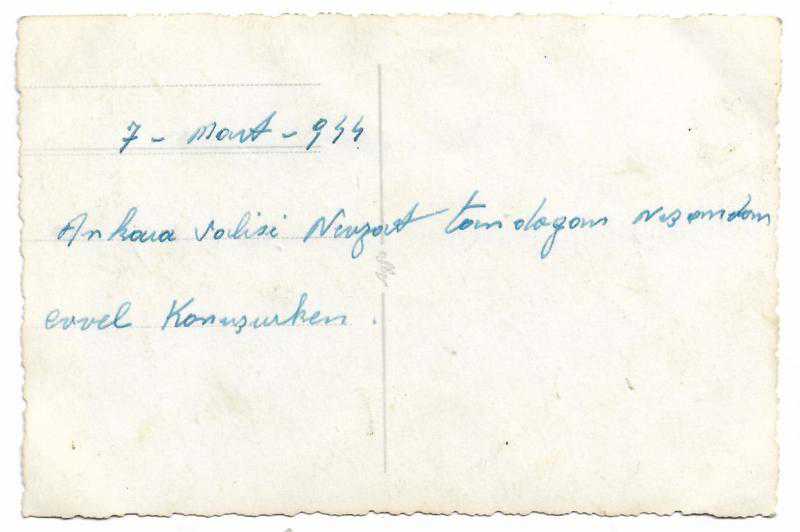 7 - Mart - 944
Ankara Valisi Nevzat tandogan nışandan
evvel Konuşurken.